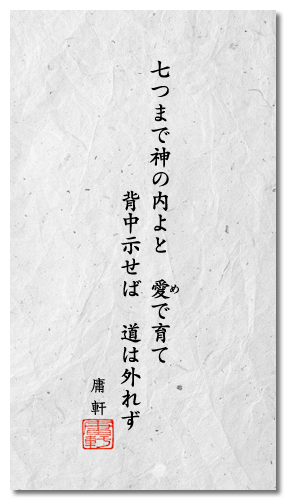 七つまで神の内よと　愛で育て
め
背中示せば　道は外れず
庸軒
庸軒